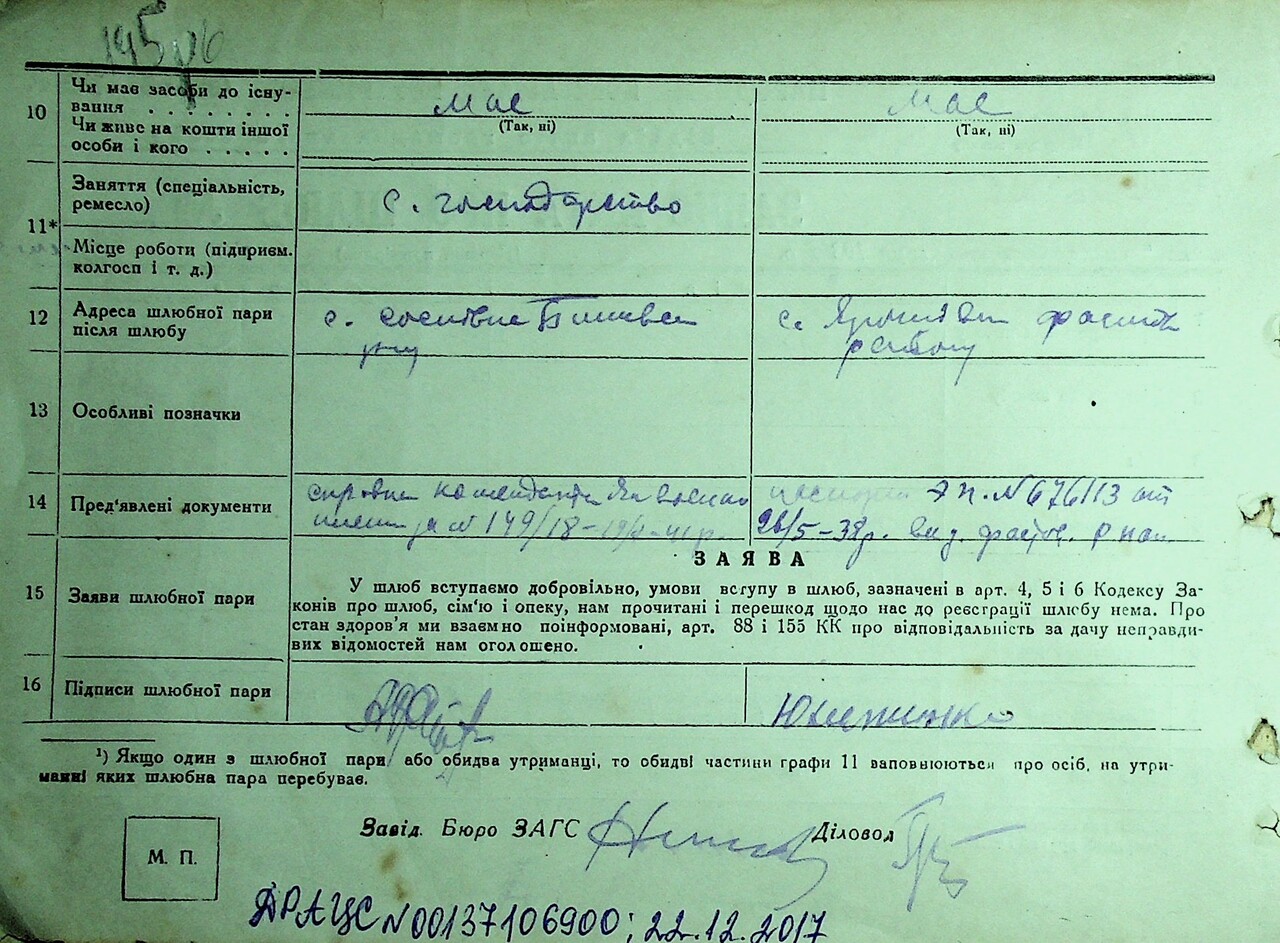 10 Чи має засоби до існу-
вання . . . . . . . . має має
(Так, ні) (Так, ні)
Чи живе на кошти іншої
особи і кого . . . . .
Заняття (спеціальність,
ремесло) с. господарство
11*
Місце роботи (підприєм.
колгосп і т. д.)
12 Адреса шлюбної пари
після шлюбу с. с.
району
13 Особливі позначки
14 Пред'явлені документи
справка коменданта № 149/18
паспорт № 676113 от
26/5-38р. вид.
ЗАЯВА
15 Заяви шлюбної пари
У шлюб вступаємо добровільно, умови вступу в шлюб, зазначені в арт. 4, 5 і 6 Кодексу За-
конів про шлюб, сім'ю і опеку, нам прочитані і перешкод щодо нас до реєстрації шлюбу нема. Про
стан здоров'я ми взаємно поінформовані, арт. 88 і 155 КК про відповідальність за дачу неправди-
вих відомостей нам оголошено.
16 Підписи шлюбної пари
¹) Якщо один з шлюбної пари або обидва утриманці, то обидві частини графи 11 заповнюються про осіб, на утри-
манні яких шлюбна пара перебуває.
Завід. Бюро ЗАГС Діловод
М. П.
ДРАЦС N 00137106900; 22.12.2017